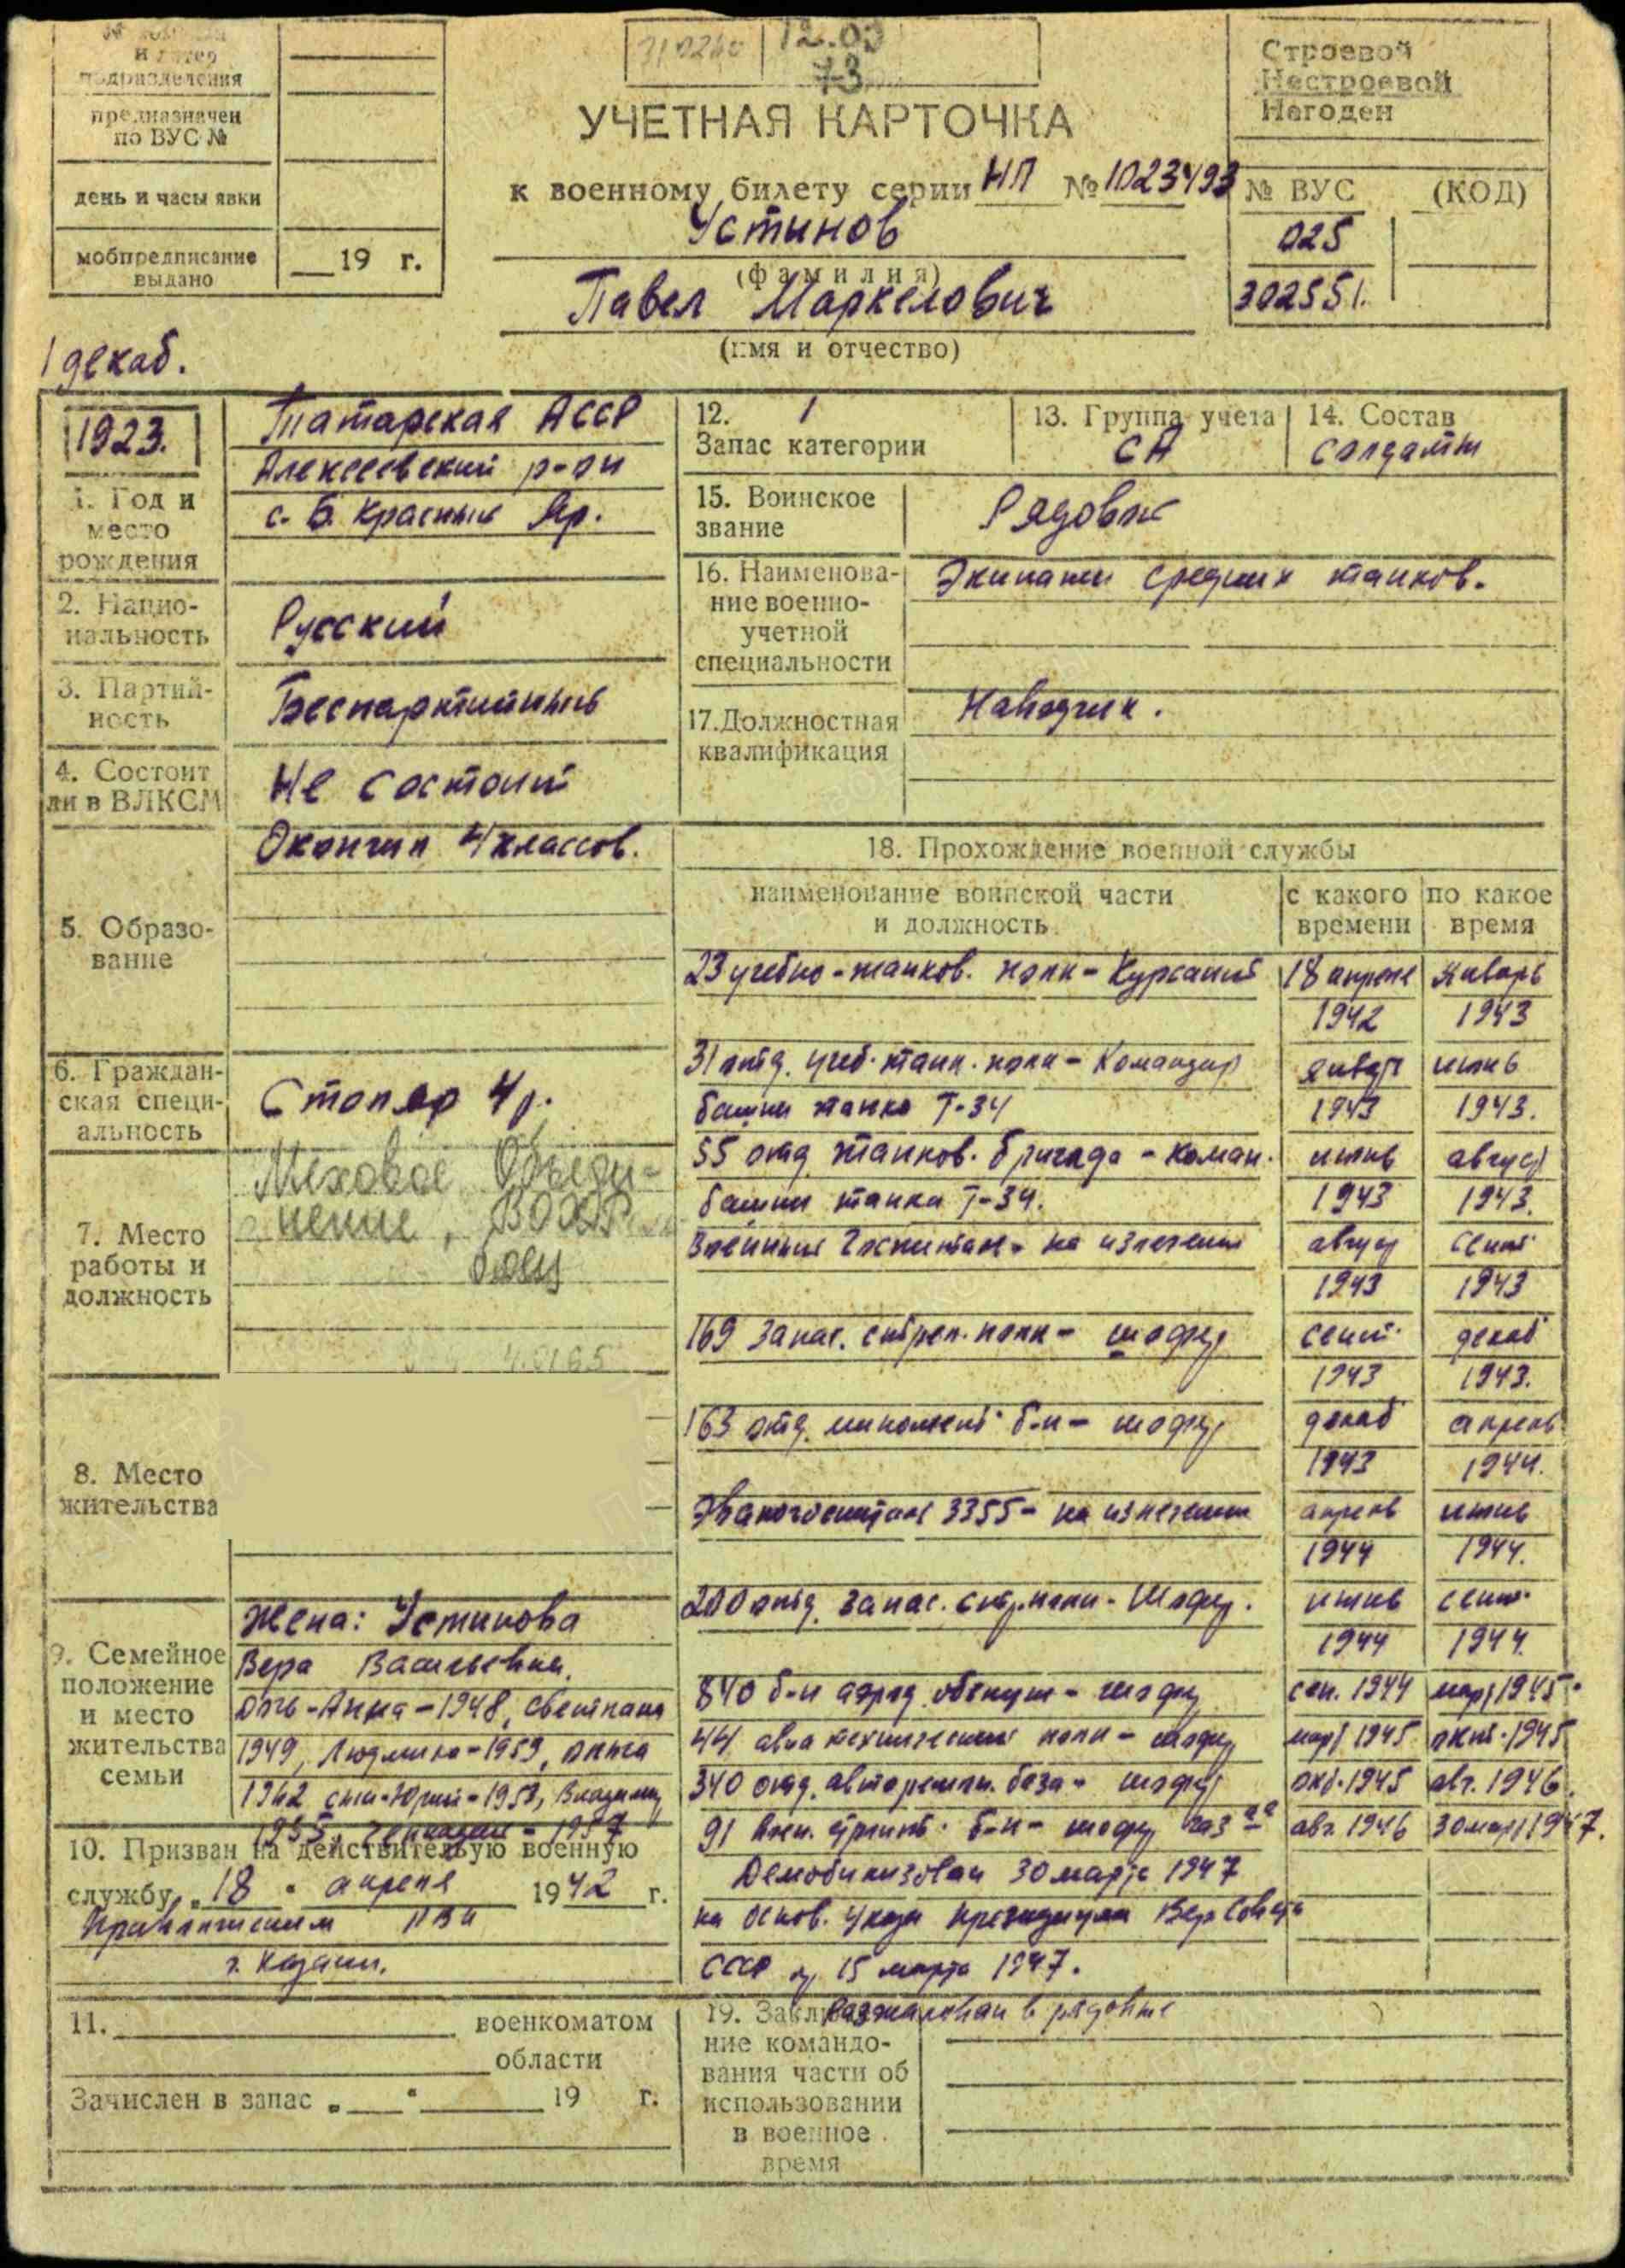 и литер
подразделения
предназначен
по ВУС №
день и часы явки
мобпредписание
выдано
19 г.
12.03
73
УЧЕТНАЯ КАРТОЧКА
к военному билету серии НП № 1023493
Устинов
(фамилия)
Павел Маркелович
(имя и отчество)
Строевой
Нестроевой
Негоден
№ ВУС (КОД)
025
302551.
1 декаб.
1923.
1. Год и
место
рождения
Татарская АССР
Алексеевский р-он
с. Б. Красный Яр.
2. Нацио-
нальность
Русский
3. Партий-
ность
Беспартийный
4. Состоит
ли в ВЛКСМ
Не состоит
5. Образо-
вание
Окончил 4 классов.
6. Граждан-
ская специ-
альность
Столяр 4 р.
7. Место
работы и
должность
Меховое Объеди-
нение, ВОХР
боец
8. Место
жительства
9. Семейное
положение
и место
жительства
семьи
Жена: Устинова
Вера Васильевна.
дочь-Анна-1948, Светлана
1949, Людмила-1959, Ольга
1962 сын-Юрий-1953, Владимир
1955, Геннадий-1957
10. Призван на действительную военную
службу „18" апреля 1942 г.
г. Казани.
11. военкоматом
области
Зачислен в запас „ " 19 г.
12. 1
Запас категории
13. Группа учета
СА
14. Состав
солдаты
15. Воинское
звание
Рядовой
16. Наименова-
ние военно-
учетной
специальности
Экипажи средних танков.
17. Должностная
квалификация
Наводчик.
18. Прохождение военной службы
наименование воинской части
и должность
с какого
времени
по какое
время
23 учебно-танков. полк - Курсант 18 апреля январь
1942 1943
31 отд. учеб. танк. полк - Командир январ июнь
башни танка Т-34 1943 1943.
55 отд. танков. бригада - Коман. июнь август
башни танка Т-34. 1943 1943.
Военный Госпиталь - на излечении август сент.
1943 1943
169 запас. стрел. полк - шофер сент. декаб
1943 1943.
163 отд. миномет. б-н - шофер декаб апрель
1943 1944.
Эвакогоспиталь 3355 - на излечении апрель июнь
1944 1944.
200 отд. запас. стр. полк - Шофер. июнь сент.
1944 1944.
840 б-н аэрод. обслуж - шофер сен. 1944 март 1945.
44 авиа технический полк - шофер март 1945 окт. 1945
340 отд. авторемон. база - шофер окт. 1945 авг. 1946.
91 воен. строит. б-н - шофер авг. 1946 30 март 1947.
Демобилизован 30 марта 1947
на основ. Указа президиума Вер. Совета
СССР от 15 марта 1947.
Разжалован в рядовые
19. Заключе-
ние командо-
вания части об
использовании
в военное
время